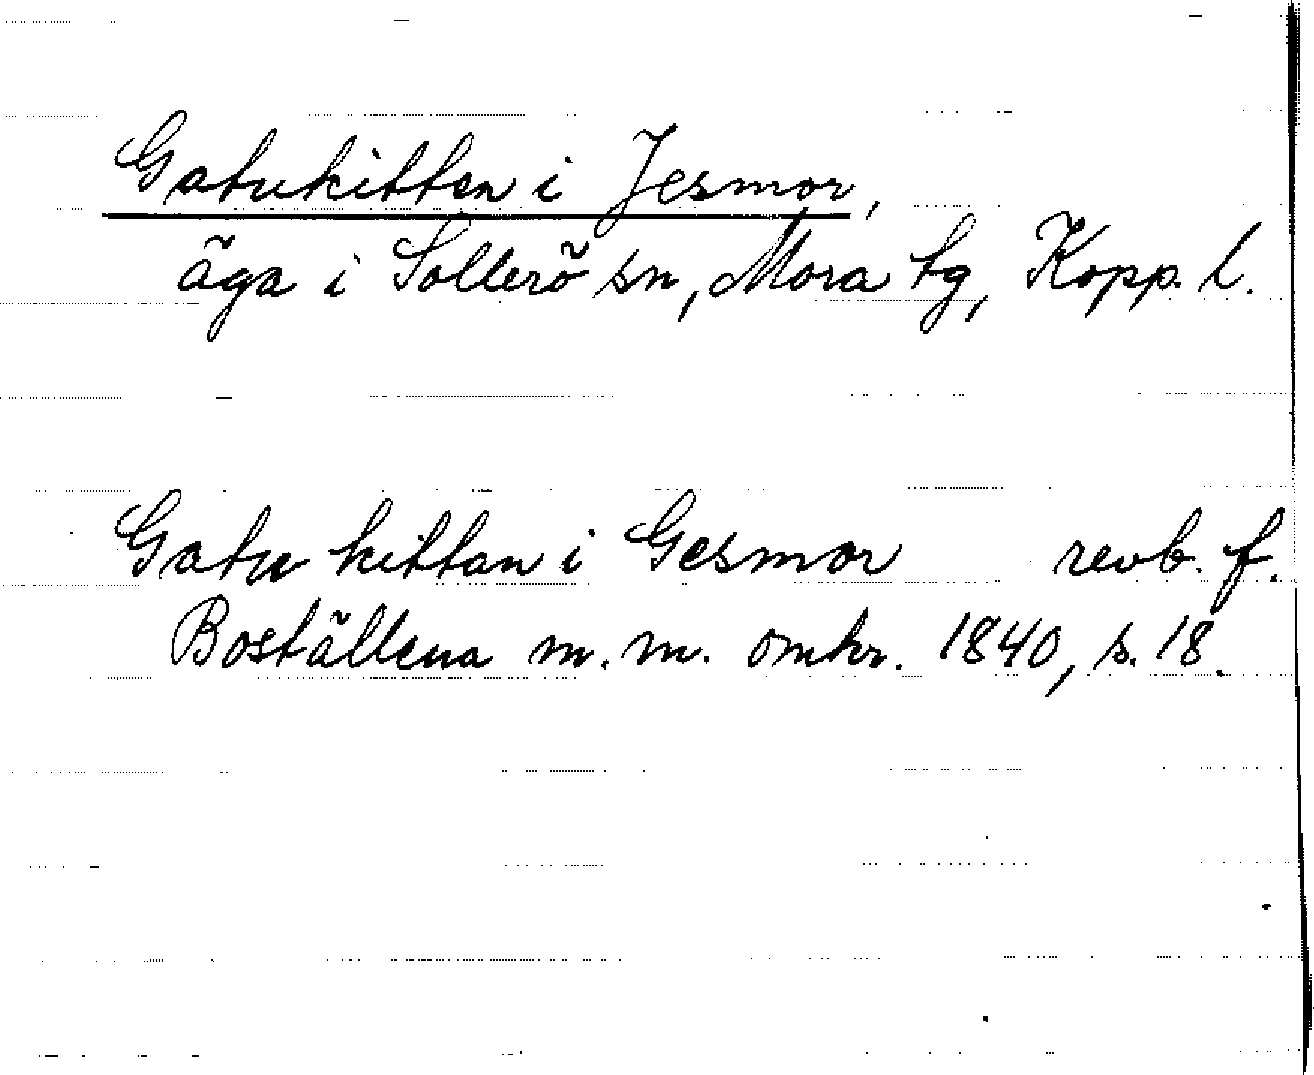 Gatukitten i Jesmor,
äga i Sollerö sn, Mora tg, Kopp. l.
Gatu kittan i Gesmor revb. f.
Boställena m.m. omkr. 1840, s. 18.